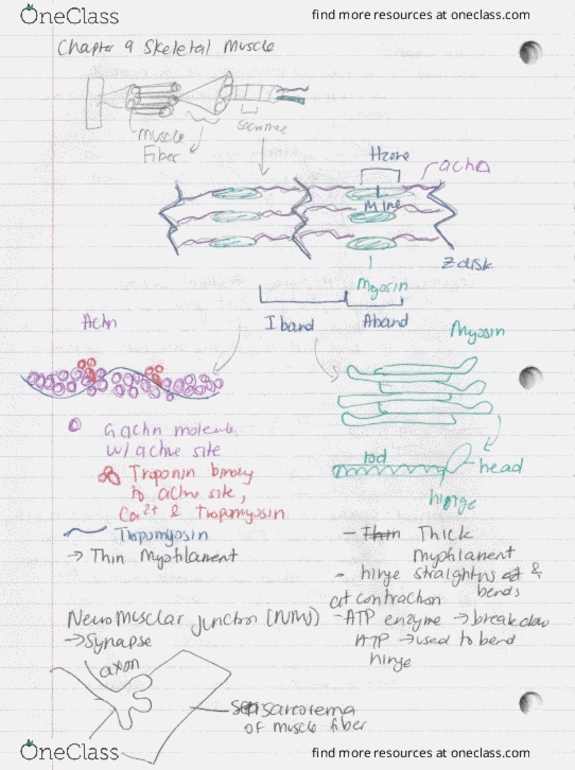 OneClass
find more resources at oneclass.com
Chapter 9 Skeletal Muscle
Muscle
Fiber
H zone
actin
M line
Z disk
Myosin
I band
A band
Actin
Myosin
G actin molecule
w/ active site
Troponin binding
to active site,
Ca2+ & tropomyosin
Tropomyosin
→ Thin Myofilament
rod
head
hinge
- Thin Thick
Myofilament
- hinge straightns & bends
at contraction
- ATP enzyme → breakdown
ATP → used to bend
hinge
Neuromusclar junction (NMJ)
→ Synapse
axon
sarcorema
of muscle fiber
OneClass
find more resources at oneclass.com